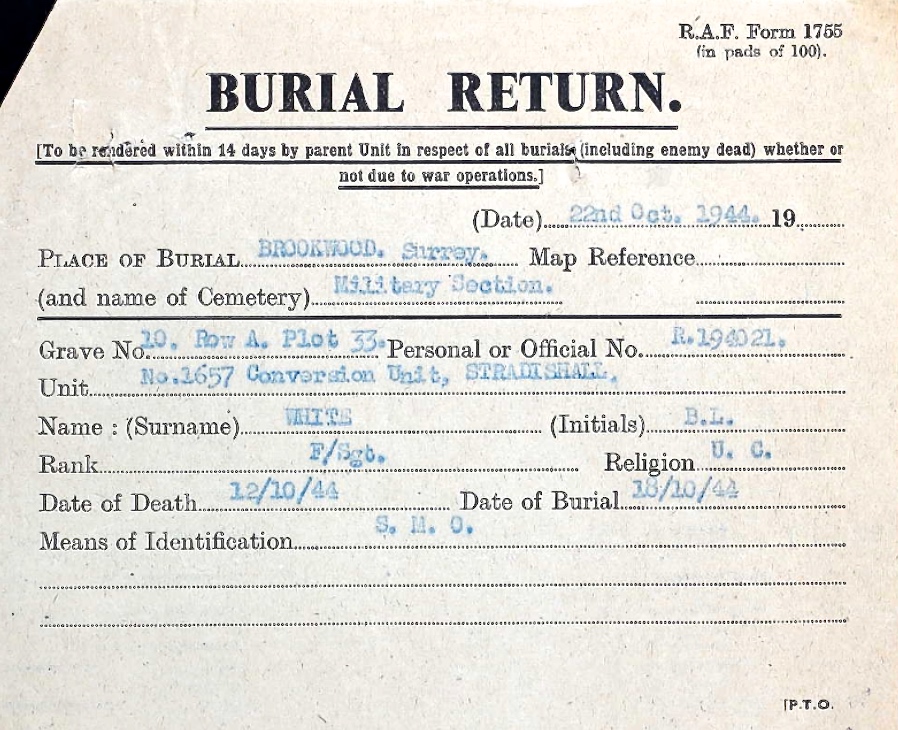 R.A.F. Form 1755
(in pads of 100).
BURIAL RETURN.
[To be rendered within 14 days by parent Unit in respect of all burials (including enemy dead) whether or
not due to war operations.]
(Date) 22nd Oct. 1944. 19
PLACE OF BURIAL BROOKWOOD. Surrey. Map Reference
(and name of Cemetery) Military Section.
Grave No. 10. Row A. Plot 33. Personal or Official No. R.194021.
Unit No.1657 Conversion Unit, STRADISHALL.
Name : (Surname) WHITE (Initials) B.L.
Rank F/Sgt. Religion U. C.
Date of Death 12/10/44 Date of Burial 18/10/44
Means of Identification S. M. O.
[P.T.O.